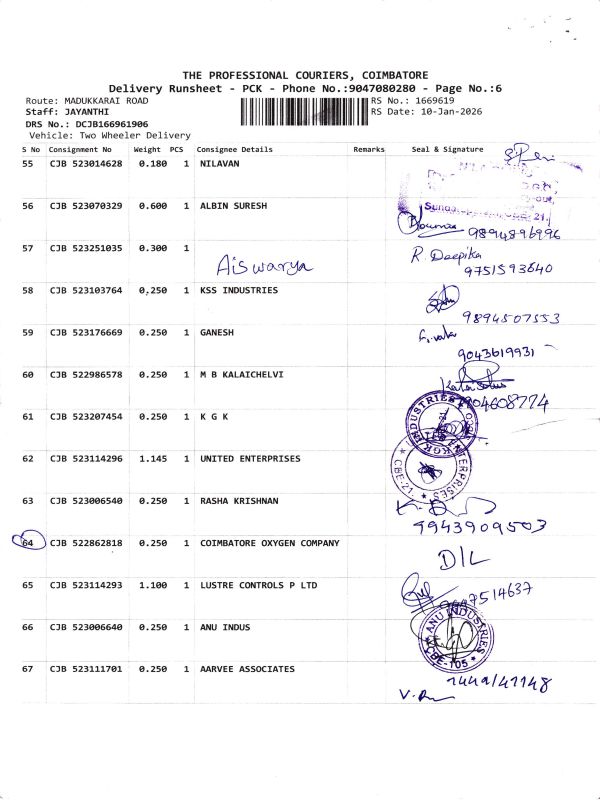 THE PROFESSIONAL COURIERS, COIMBATORE
Delivery Runsheet - PCK - Phone No.:9047080280 - Page No.:6
Route: MADUKKARAI ROAD RS No.: 1669619
Staff: JAYANTHI RS Date: 10-Jan-2026
DRS No.: DCJB166961906
Vehicle: Two Wheeler Delivery
S No Consignment No Weight PCS Consignee Details Remarks Seal & Signature
55 CJB 523014628 0.180 1 NILAVAN
56 CJB 523070329 0.600 1 ALBIN SURESH
9894896996
57 CJB 523251035 0.300 1 Aiswarya R. Deepika
9751593640
58 CJB 523103764 0.250 1 KSS INDUSTRIES
9894507553
59 CJB 523176669 0.250 1 GANESH
9043619931
60 CJB 522986578 0.250 1 M B KALAICHELVI
61 CJB 523207454 0.250 1 K G K
KGK INDUSTRIES
62 CJB 523114296 1.145 1 UNITED ENTERPRISES
CBE-21
63 CJB 523006540 0.250 1 RASHA KRISHNAN
9943909503
64 CJB 522862818 0.250 1 COIMBATORE OXYGEN COMPANY
D/L
65 CJB 523114293 1.100 1 LUSTRE CONTROLS P LTD
7514637
66 CJB 523006640 0.250 1 ANU INDUS
ANU INDUSTRIES
CBE-105
67 CJB 523111701 0.250 1 AARVEE ASSOCIATES